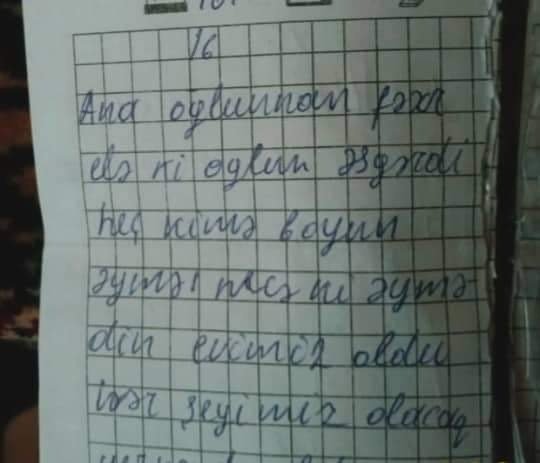 16
Ana oğlunnan fəxr
elə ki oğlun əjdərdi
heç kimə boyun
əymə! necə ki əymə
din evimiz oldu
hər şeyimiz olacaq